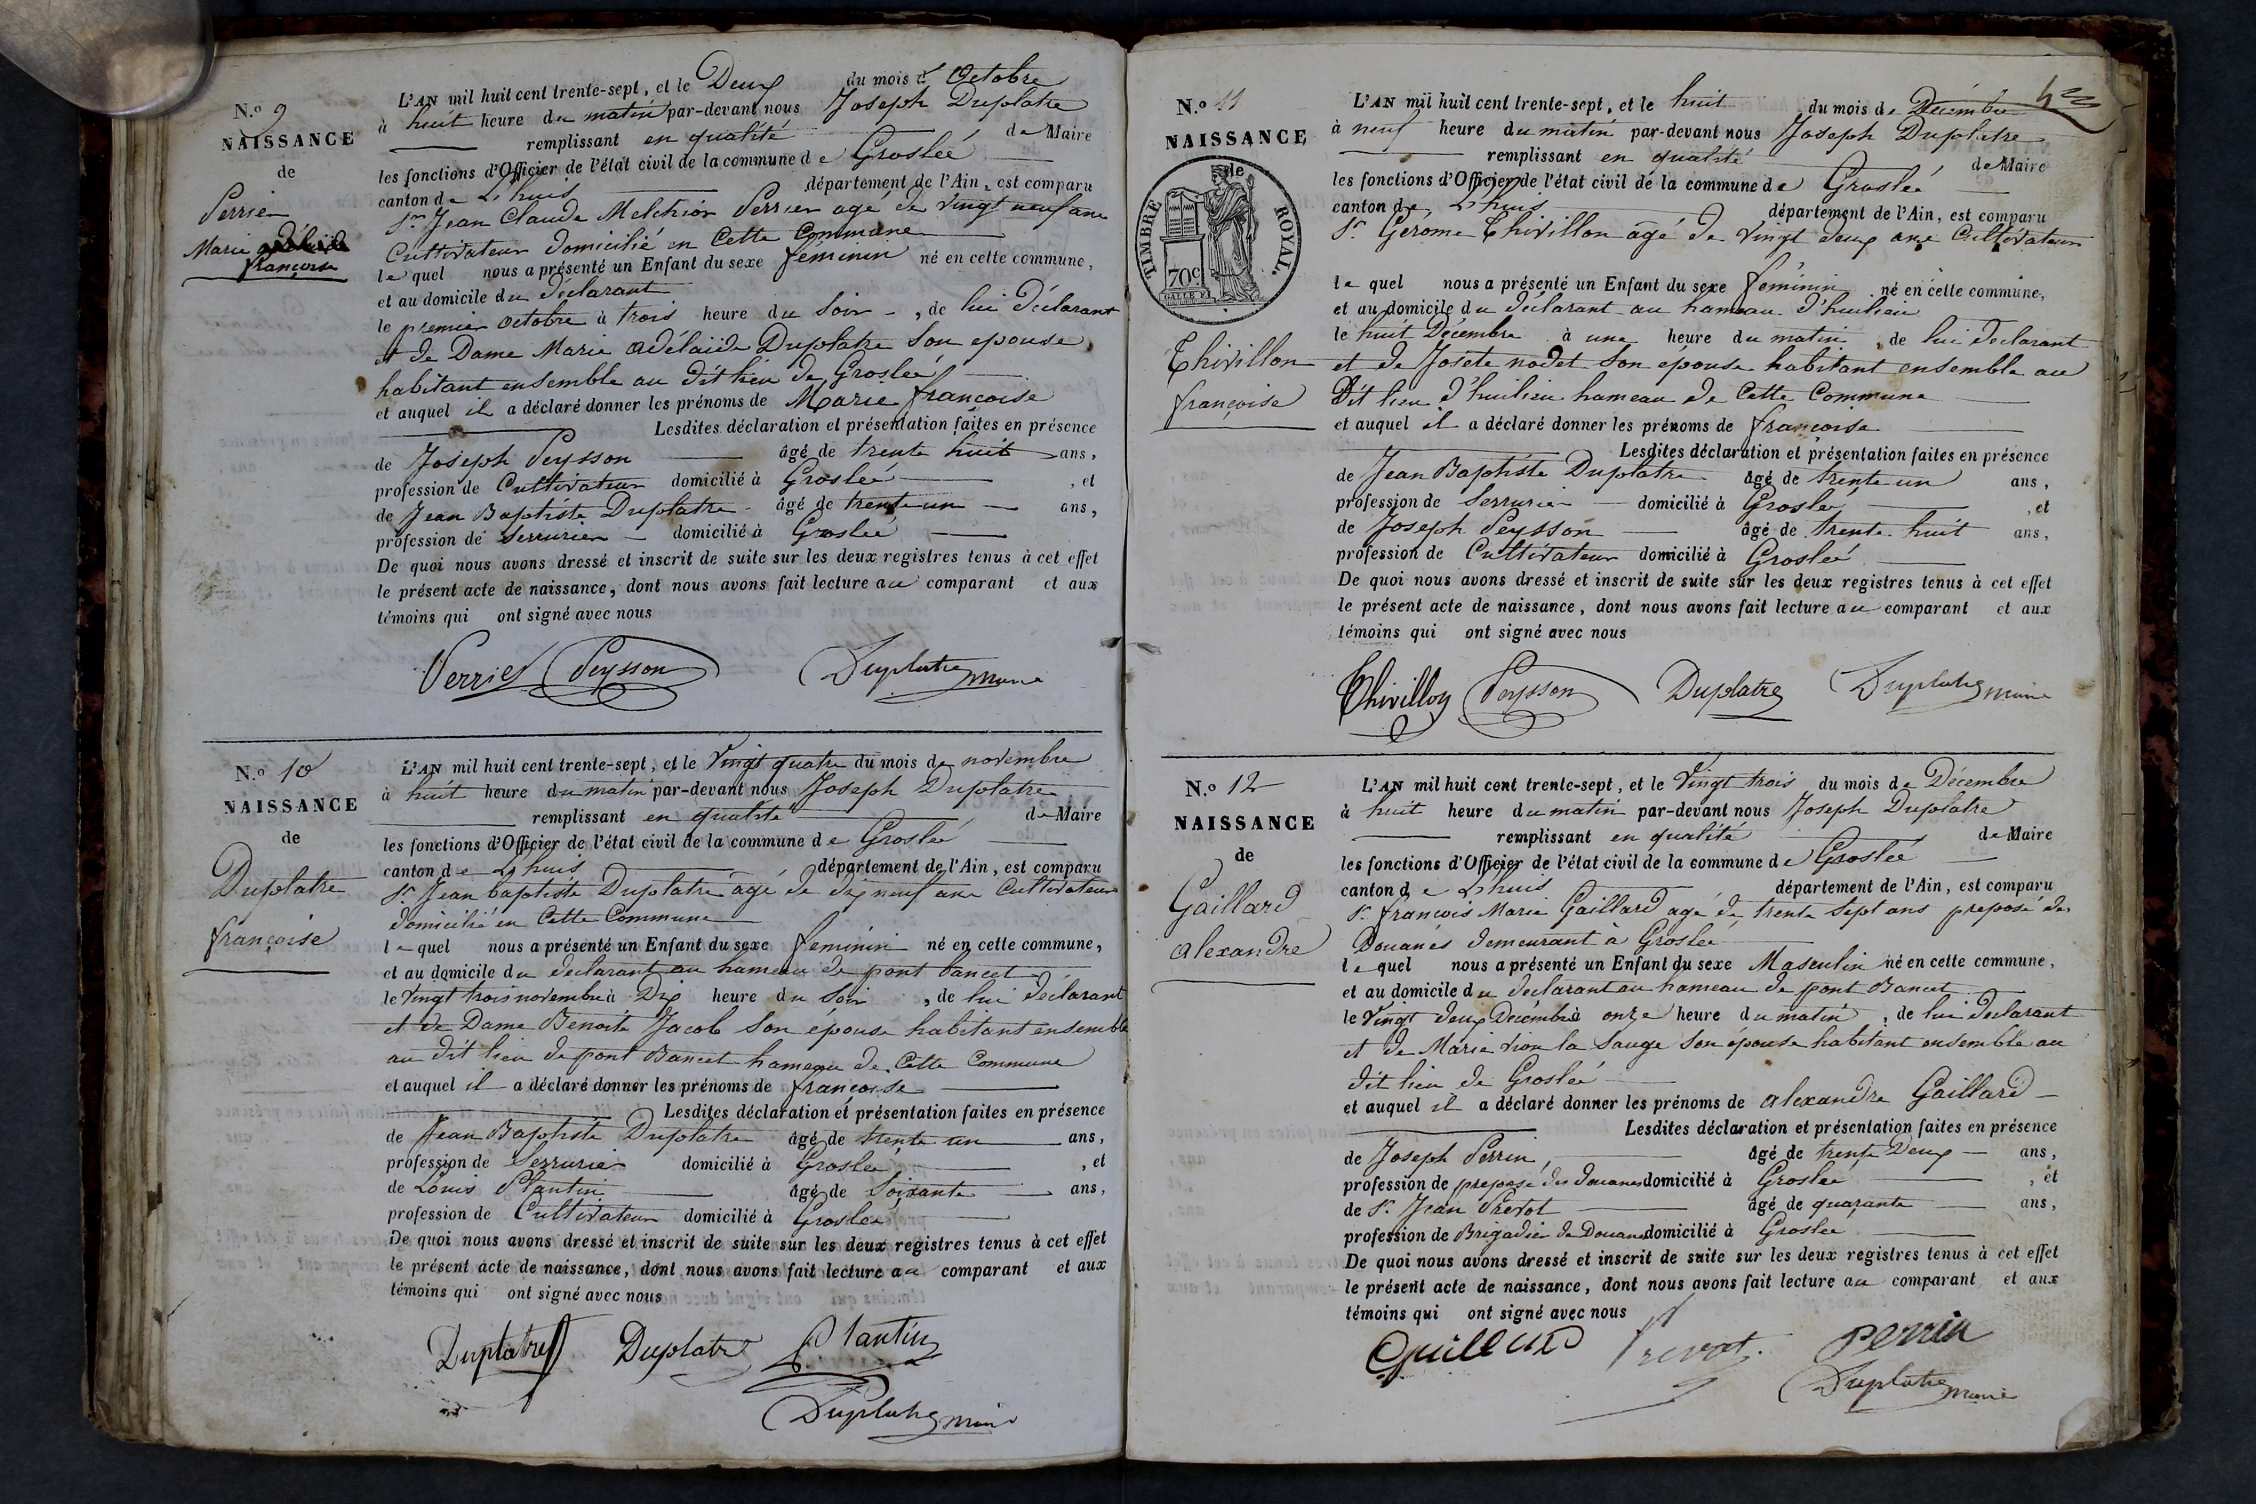 N.o 9
NAISSANCE
de
Perrier
Marie
françoise
L'AN mil huit cent trente-sept, et le Deux du mois d' Octobre
à huit heure du matin par-devant nous Joseph Duplatre
remplissant en qualité de Maire
les fonctions d'Officier de l'état civil de la commune de Groslée
canton de Lhuis département de l'Ain, est comparu
Sr. Jean Claude Melchior Perrier agé de vingt neuf ans
Cultivateur domicilié en Cette Commune
lequel nous a présenté un Enfant du sexe féminin né en cette commune,
et au domicile du déclarant
le premier octobre à trois heure du Soir, de lui Déclarant
et de Dame Marie adélaïde Duplatre Son epouse
habitant ensemble au dit lieu de Groslée
et auquel il a déclaré donner les prénoms de Marie françoise
Lesdites déclaration et présentation faites en présence
de Joseph Peysson âgé de trente huit ans,
profession de Cultivateur domicilié à Groslée, et
de Jean Baptiste Duplatre âgé de trente un ans,
profession de Serrurier domicilié à Groslée
De quoi nous avons dressé et inscrit de suite sur les deux registres tenus à cet effet
le présent acte de naissance, dont nous avons fait lecture au comparant et aux
témoins qui ont signé avec nous
Perrier Peysson Duplatre maire
N.o 10
NAISSANCE
de
Duplatre
françoise
L'AN mil huit cent trente-sept, et le Vingt quatre du mois de novembre
à huit heure du matin par-devant nous Joseph Duplatre
remplissant en qualité de Maire
les fonctions d'Officier de l'état civil de la commune de Groslée
canton de Lhuis département de l'Ain, est comparu
Sr. Jean baptiste Duplatre agé de dix neuf ans Cultivateur
domicilié en Cette Commune
lequel nous a présenté un Enfant du sexe feminin né en cette commune,
et au domicile du declarant au hameau de pont bancet
le Vingt trois novembre à Dix heure du Soir, de lui déclarant
et de Dame Benoite Jacob Son épouse habitant ensemble
au dit lieu de pont Bancet hameau de Cette Commune
et auquel il a déclaré donner les prénoms de françoise
Lesdites déclaration et présentation faites en présence
de Jean Baptiste Duplatre âgé de trente un ans,
profession de Serrurier domicilié à Groslée, et
de Louis Plantin âgé de Soixante ans,
profession de Cultivateur domicilié à Groslée
De quoi nous avons dressé et inscrit de suite sur les deux registres tenus à cet effet
le présent acte de naissance, dont nous avons fait lecture au comparant et aux
témoins qui ont signé avec nous
Duplatre Duplatre Plantin
Duplatre maire
N.o 11
NAISSANCE
de
TIMBRE ROYAL.
70c
Thivillon
françoise
L'AN mil huit cent trente-sept, et le huit du mois de Décembre
à neuf heure du matin par-devant nous Joseph Duplatre
remplissant en qualité de Maire
les fonctions d'Officier de l'état civil de la commune de Groslée
canton de Lhuis département de l'Ain, est comparu
Sr. Gerome Thivillon agé de vingt deux ans Cultivateur
lequel nous a présenté un Enfant du sexe féminin né en cette commune,
et au domicile du déclarant au hameau d'huilieu
le huit Décembre à une heure du matin, de lui Declarant
et de Josete nodet Son épouse habitant ensemble au
Dit lieu d'huilieu hameau de Cette Commune
et auquel il a déclaré donner les prénoms de françoise
Lesdites déclaration et présentation faites en présence
de Jean Baptiste Duplatre âgé de trente un ans,
profession de Serrurier domicilié à Groslée, et
de Joseph Peysson âgé de trente huit ans,
profession de Cultivateur domicilié à Groslée
De quoi nous avons dressé et inscrit de suite sur les deux registres tenus à cet effet
le présent acte de naissance, dont nous avons fait lecture au comparant et aux
témoins qui ont signé avec nous
Thivillon Peysson Duplatre Duplatre maire
N.o 12
NAISSANCE
de
Gaillard
alexandre
L'AN mil huit cent trente-sept, et le Vingt trois du mois de Décembre
à huit heure du matin par-devant nous Joseph Duplatre
remplissant en qualité de Maire
les fonctions d'Officier de l'état civil de la commune de Groslée
canton de Lhuis département de l'Ain, est comparu
Sr. françois Marie Gaillard agé de trente Sept ans preposé des
Douanes demeurant à Groslée
lequel nous a présenté un Enfant du sexe Masculin né en cette commune,
et au domicile du déclarant au hameau de pont Bancet
le Vingt deux Décembre à onze heure du matin, de lui Declarant
et de Marie la Sauge Son épouse habitant ensemble au
dit lieu de Groslée
et auquel il a déclaré donner les prénoms de alexandre Gaillard
Lesdites déclaration et présentation faites en présence
de Joseph Perrin âgé de trente Deux ans,
profession de preposé des douanes domicilié à Groslée, et
de Sr. Jean Prevot âgé de quarante ans,
profession de Brigadier de Douanes domicilié à Groslée
De quoi nous avons dressé et inscrit de suite sur les deux registres tenus à cet effet
le présent acte de naissance, dont nous avons fait lecture au comparant et aux
témoins qui ont signé avec nous
Prevot Perrin
Duplatre maire